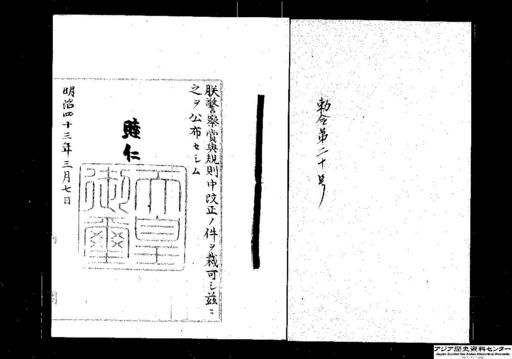 勅令第二十号
朕警察賞與規則中改正ノ件ヲ裁可シ茲ニ
之ヲ公布セシム
睦仁
天皇
御璽
明治四十三年三月七日
アジア歴史資料センター
Japan Center for Asian Historical Records